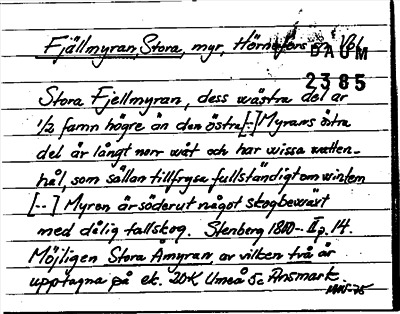 Fjällmyran, Stora, myr, Hörnefors sn Vb
DAUM
2385
Stora Fjellmyran, dess wästra del är
1/2 famn högre än den östra [-] Myrans östra
del är långt norr wåt och har wissa watten-
hål, som sällan tillfrysa fullständigt om wintern
[--] Myren är söderut något skogbewäxt
med dålig tallskog. Stenberg 1800- II p. 14.
Möjligen Stora Åmyran, av vilken två är
upptagna på ek. 20K Umeå 5c Ansmark.